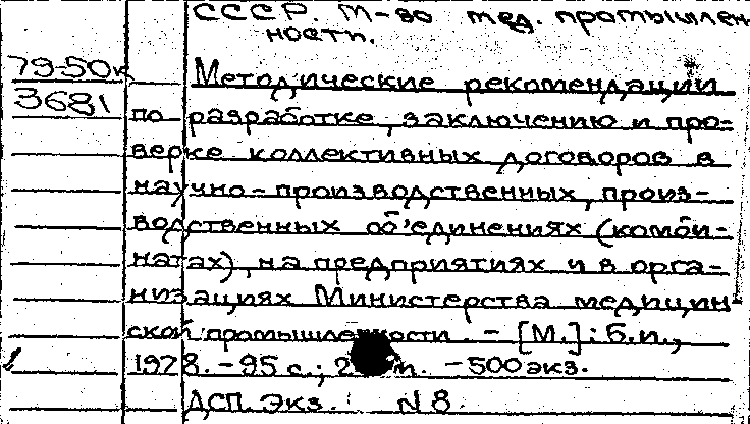 СССР. М-во мед. промышлен
ности.
79-50к
3681
Методические рекомендации
по разработке, заключению и про-
верке коллективных договоров в
научно-производственных, произ-
водственных об'единениях (комби-
натах), на предприятиях и в орга-
низациях Министерства медицин-
ской промышленности. - [М.]: Б.и.,
1978. - 95 с.; 2 . - 500 экз.
ДСП. Экз.: N 8.